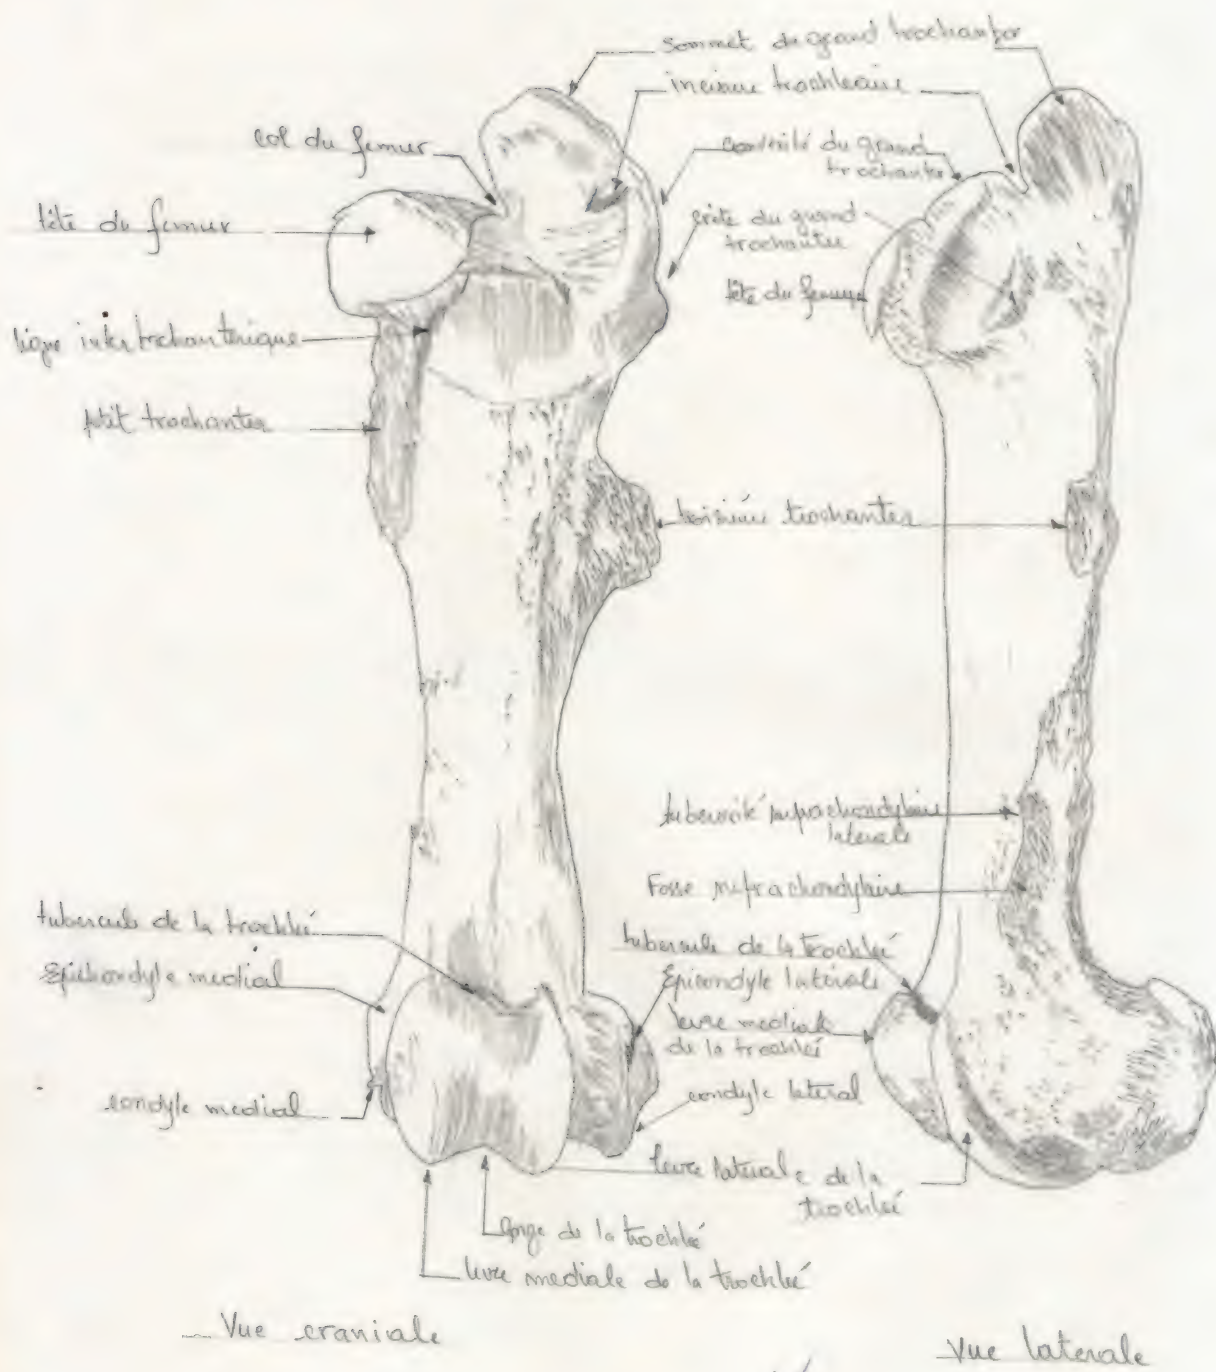 sommet du grand trochanter
incisure trochleaire
col du femur
convéxité du grand
trochanter
tête du femur
crête du grand
trochanter
tête du femur
ligne intertrochanterique
ptit trochanter
troisième trochanter
tuberosité suprachondylaire
laterale
Fosse suprachondylaire
tubercule de la trochleé
tubercule de la trochleé
Epichondyle medial
Epicondyle latérale
levre mediale
de la trochleé
condyle medial
condyle lateral
levre laterale de la
trochleé
gorge de la trochleé
levre mediale de la trochleé
Vue craniale
Vue laterale